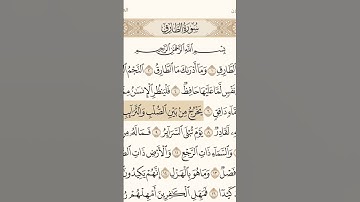 سُورَةُ الطَّارِقِ
بِسْمِ اللَّهِ الرَّحْمَٰنِ الرَّحِيمِ
الطَّارِقِ ۝ وَمَا أَدْرَاكَ مَا الطَّارِقُ ۝ النَّجْمُ
نَفْسٍ لَّمَّا عَلَيْهَا حَافِظٌ ۝ فَلْيَنظُرِ الْإِنسَانُ
مَّاءٍ دَافِقٍ ۝ يَخْرُجُ مِن بَيْنِ الصُّلْبِ وَالتَّرَائِبِ
لَقَادِرٌ ۝ يَوْمَ تُبْلَى السَّرَائِرُ ۝ فَمَا لَهُ مِن
وَالسَّمَاءِ ذَاتِ الرَّجْعِ ۝ وَالْأَرْضِ ذَاتِ
فَصْلٌ ۝ وَمَا هُوَ بِالْهَزْلِ ۝ إِنَّهُمْ يَكِيدُونَ
كَيْدًا ۝ فَمَهِّلِ الْكَافِرِينَ أَمْهِلْهُمْ